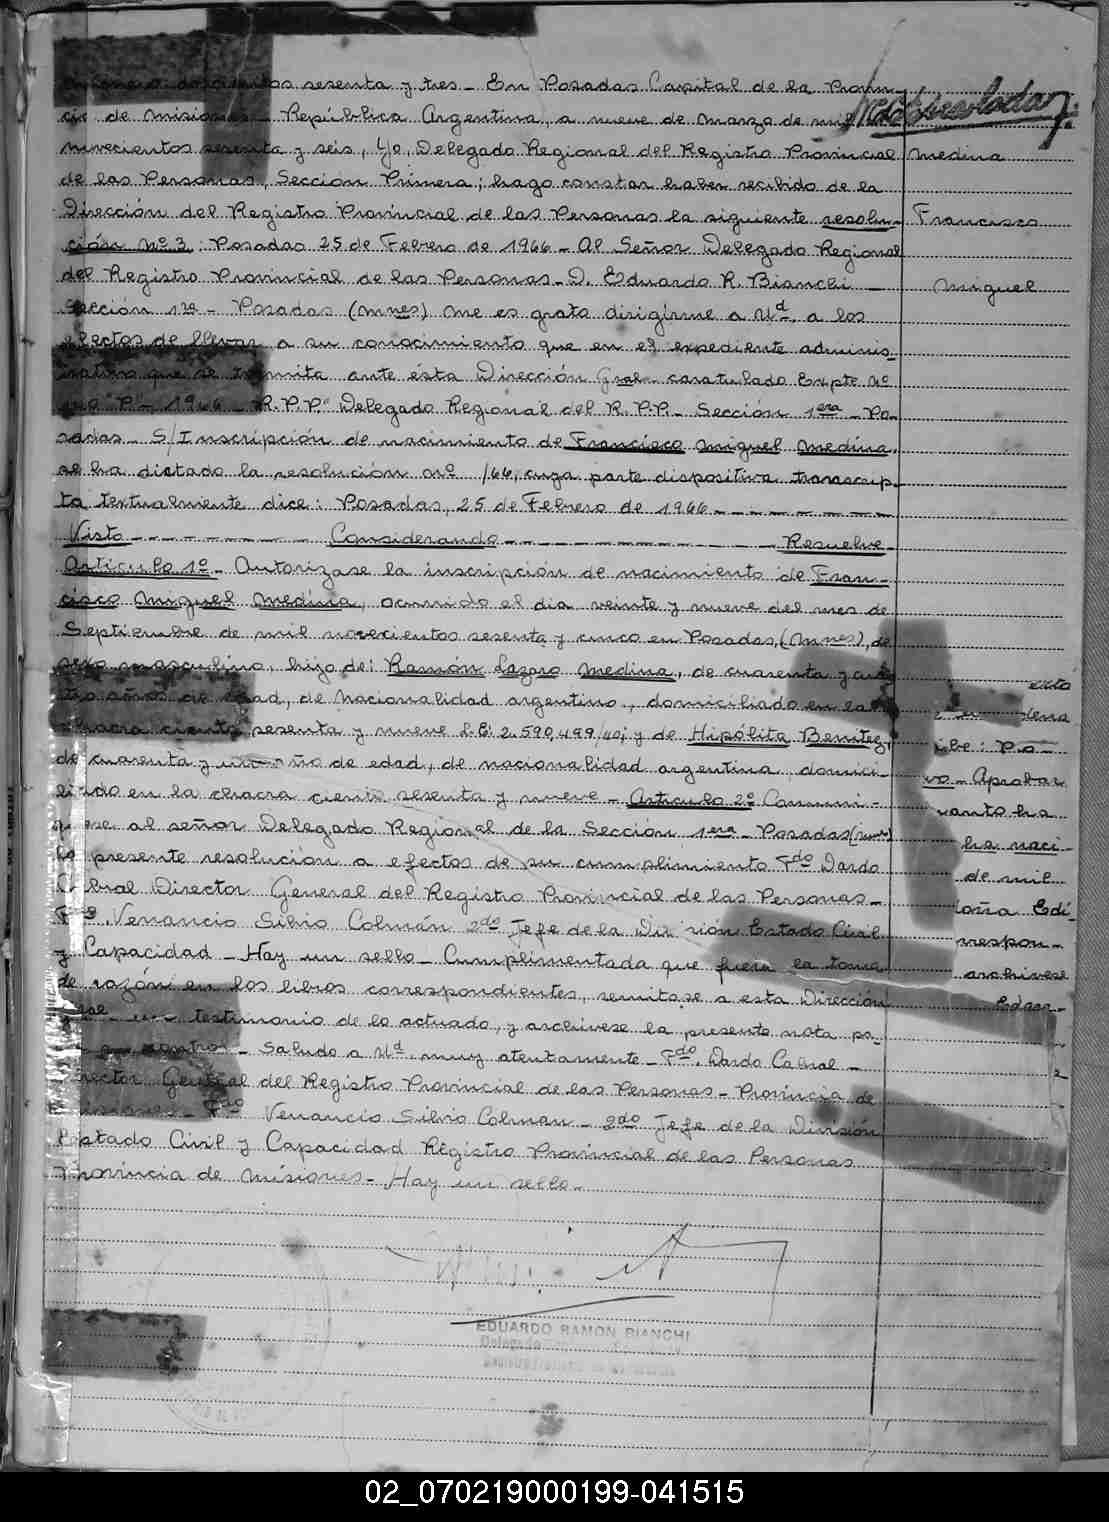 número doscientos sesenta y tres - En Posadas Capital de la Provin-
cia de Misiones - República Argentina, a nueve de marzo de mil
novecientos sesenta y seis, Yo, Delegado Regional del Registro Provincial
de las Personas, Sección Primera; hago constar haber recibido de la
Dirección del Registro Provincial de las Personas la siguiente resolu-
ción nº 3: Posadas 25 de Febrero de 1966 - Al Señor Delegado Regional
del Registro Provincial de las Personas - D. Eduardo R. Bianchi -
Sección 1ra - Posadas (mnes) Me es grato dirigirme a Ud. a los
efectos de llevar a su conocimiento que en el expediente adminis-
trativo que se tramita ante esta Dirección Gral. caratulado Expte Nº
"P" - 1966 - R.P.P. Delegado Regional del R.P.P. - Sección 1era - Po-
sadas - S/Inscripción de nacimiento de Francisco Miguel Medina,
se ha dictado la resolución nº /66, cuya parte dispositiva transcrip-
ta textualmente dice: Posadas, 25 de Febrero de 1966
Visto - Considerando - Resuelve
Artículo 1º - Autorizase la inscripción de nacimiento de Fran-
cisco Miguel Medina, ocurrido el día veinte y nueve del mes de
Septiembre de mil novecientos sesenta y cinco en Posadas, (Mnes), de
sexo masculino, hijo de: Ramón Lazaro Medina, de cuarenta y cua-
tro años de edad, de nacionalidad argentino, domiciliado en la
chacra ciento sesenta y nueve L.E: 2.590.499/40; y de Hipólita Benitez,
de cuarenta y año de edad, de nacionalidad argentina, domici-
liado en la chacra ciento sesenta y nueve - Artículo 2º Comuni-
quese al señor Delegado Regional de la Sección 1era - Posadas (mnes)
la presente resolución a efectos de su cumplimiento Fdo Dardo
Cabral Director General del Registro Provincial de las Personas -
Fdo. Venancio Silvio Colmán 2do Jefe de la División Estado Civil
y Capacidad - Hay un sello - Cumplimentada que fuera la toma
de razón en los libros correspondientes, remitase a esta Dirección
Gral. un testimonio de lo actuado, y archivese la presente nota pa-
- Saludo a Ud. muy atentamente - Fdo. Dardo Cabral -
Director General del Registro Provincial de las Personas - Provincia de
Misiones - Fdo Venancio Silvio Colman - 2do Jefe de la División
Estado Civil y Capacidad Registro Provincial de las Personas
Provincia de Misiones - Hay un sello -
EDUARDO RAMON BIANCHI
Delegado
Medina
Francisco
Miguel
ibe: Po-
vo - Aprobar
uanto ha
ha naci-
de mil
doña Edi-
rrespon-
archivese
02_070219000199-041515